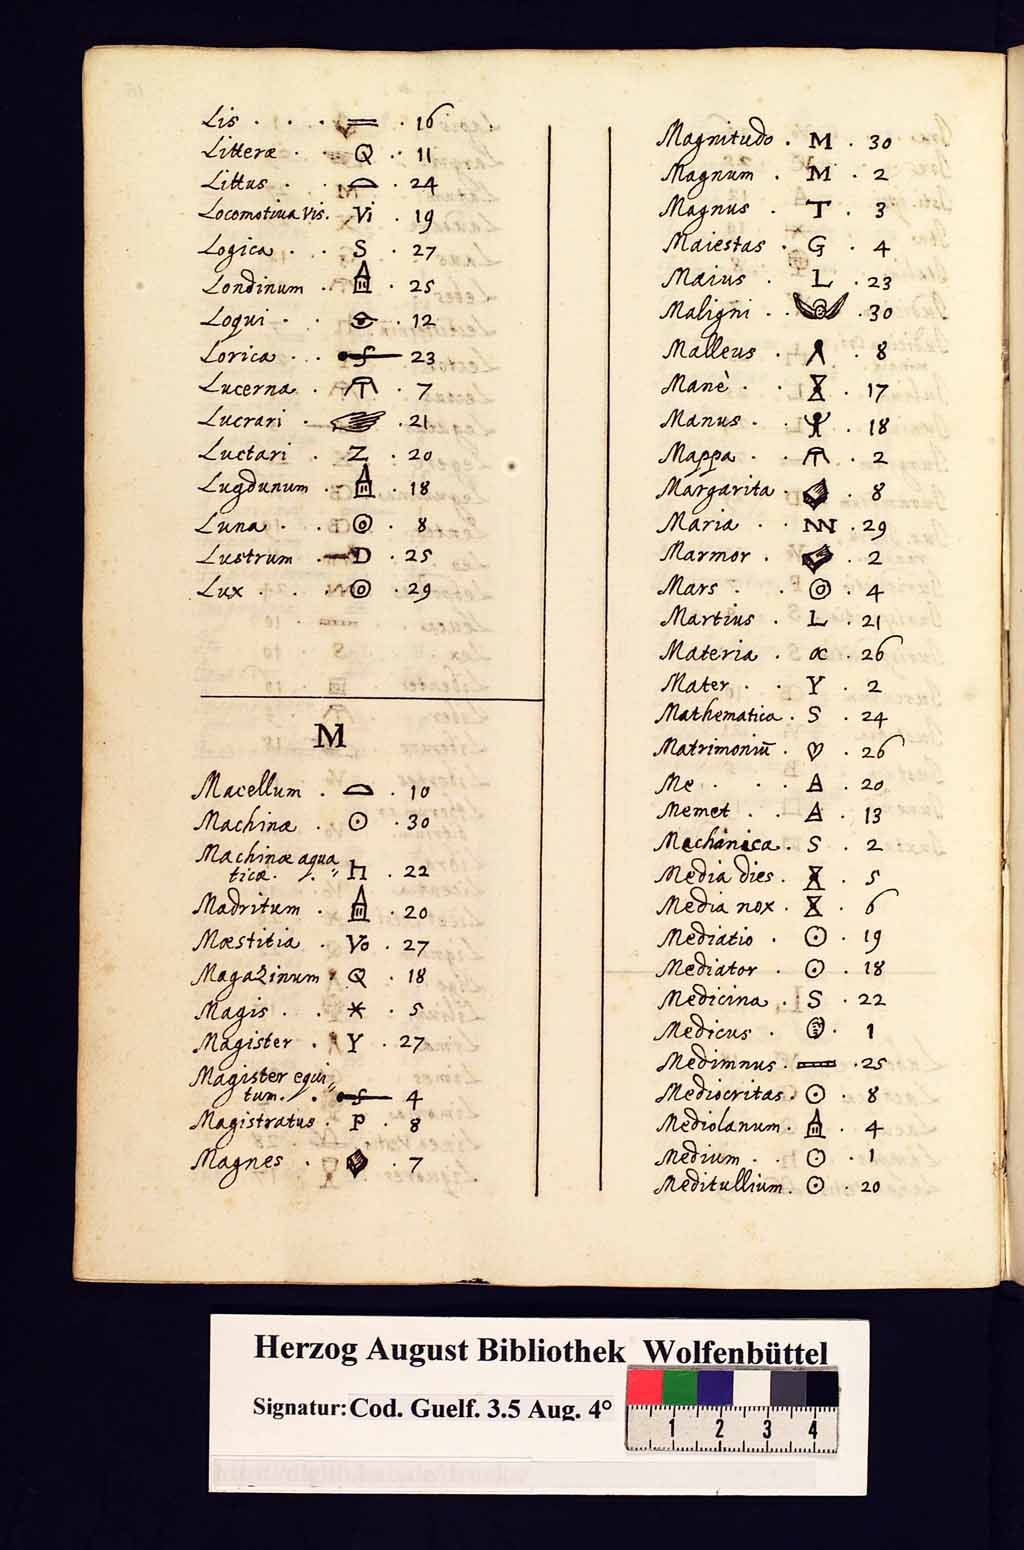 Lis . . . . 16
Litteræ . . Q . . 11
Littus . . . 24
Locomotiua Vis. Vi . 19
Logica . . S . 27
Londinum . . 25
Loqui . . . 12
Lorica . . . 23
Lucerna . . 7
Lucrari . . 21
Luctari . Z . 20
Lugdunum . . 18
Luna . . ☉ . 8
Lustrum D . 25
Lux . . ☉ . 29
M
Macellum . . 10
Machina . ☉ . 30
Machinæ aqua
ticæ . . H . 22
Madritum . . 20
Mæstitia . Vo . 27
Magazinum . Q . 18
Magis . . * . 5
Magister . Y . 27
Magister equi
tum . . 4
Magistratus . P . 8
Magnes . . 7
Magnitudo . M . 30
Magnum . M . 2
Magnus . T . 3
Maiestas . G . 4
Maius . L . 23
Maligni . . 30
Malleus . . 8
Manè . . 17
Manus . . . 18
Mappa . . 2
Margarita . . 8
Maria . . . 29
Marmor . . 2
Mars . . ☉ . 4
Martius . L . 21
Materia . ∝ . 26
Mater . . Y . 2
Mathematica . S . 24
Matrimoniū . ♡ . 26
Me . . . A . 20
Memet . . A . 13
Mechanica . S . 2
Media dies . . 5
Media nox . . 6
Mediatio . ☉ . 19
Mediator . ☉ . 18
Medicina . S . 22
Medicus . . 1
Medimnus . . 25
Mediocritas . ☉ . 8
Mediolanum . . 4
Medium . . ☉ . 1
Meditullium . ☉ . 20
Herzog August Bibliothek Wolfenbüttel
Signatur: Cod. Guelf. 3.5 Aug. 4°
1 2 3 4